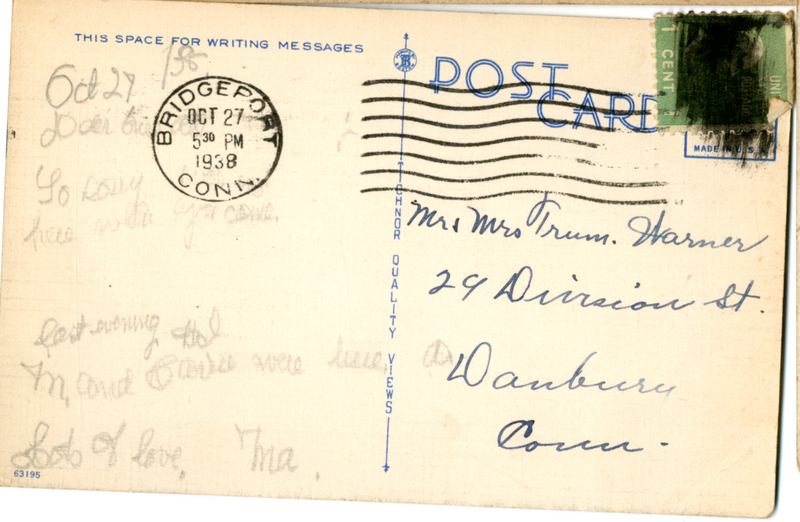 THIS SPACE FOR WRITING MESSAGES
POST
CARD
1 CENT 1
UNI
MADE IN U.S.A.
BRIDGEPORT
OCT 27
5 30 PM
1938
CONN.
Oct 27 /38
So sorry
here when you come.
Last evening
M, and were here,
Lots of love, Ma.
TICHNOR QUALITY VIEWS
Mr & Mrs Trum. Warner
29 Division St.
Danbury
Conn.
63195